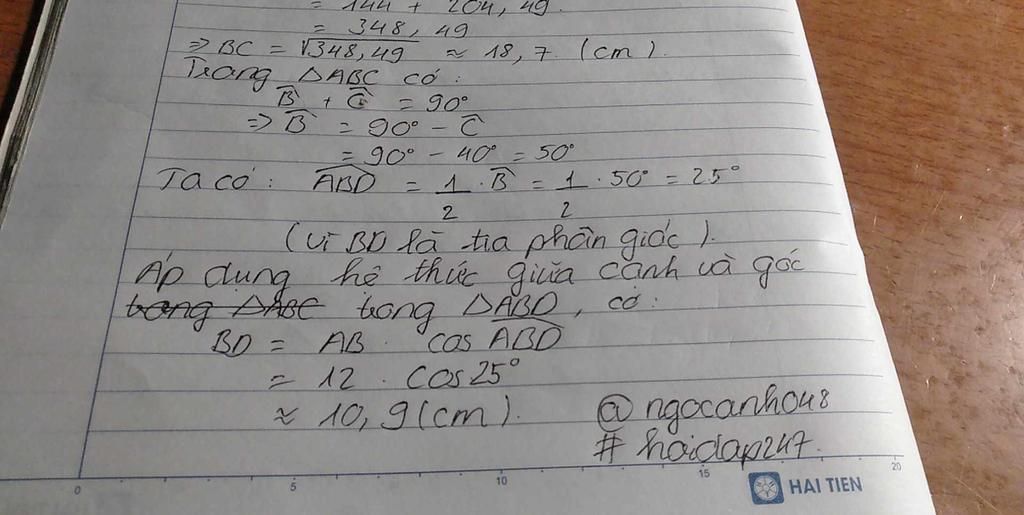 = 144 + 204, 49.
= 348, 49
⇒ BC = √348,49 ≈ 18,7 (cm).
Trong △ABC có:
B̂ + Ĉ = 90°
⇒ B̂ = 90° - Ĉ
= 90° - 40° = 50°
Ta có: ABD̂ = 1/2 . B̂ = 1/2 . 50° = 25°
(vì BD là tia phân giác).
Áp dụng hệ thức giữa cạnh và góc
trong △ABC trong △ABD, có:
BD = AB . cos ABD̂
= 12 . cos25°
≈ 10,9(cm).
@ngocanh048
# hoidap247.
0 5 10 15 20
HAI TIEN